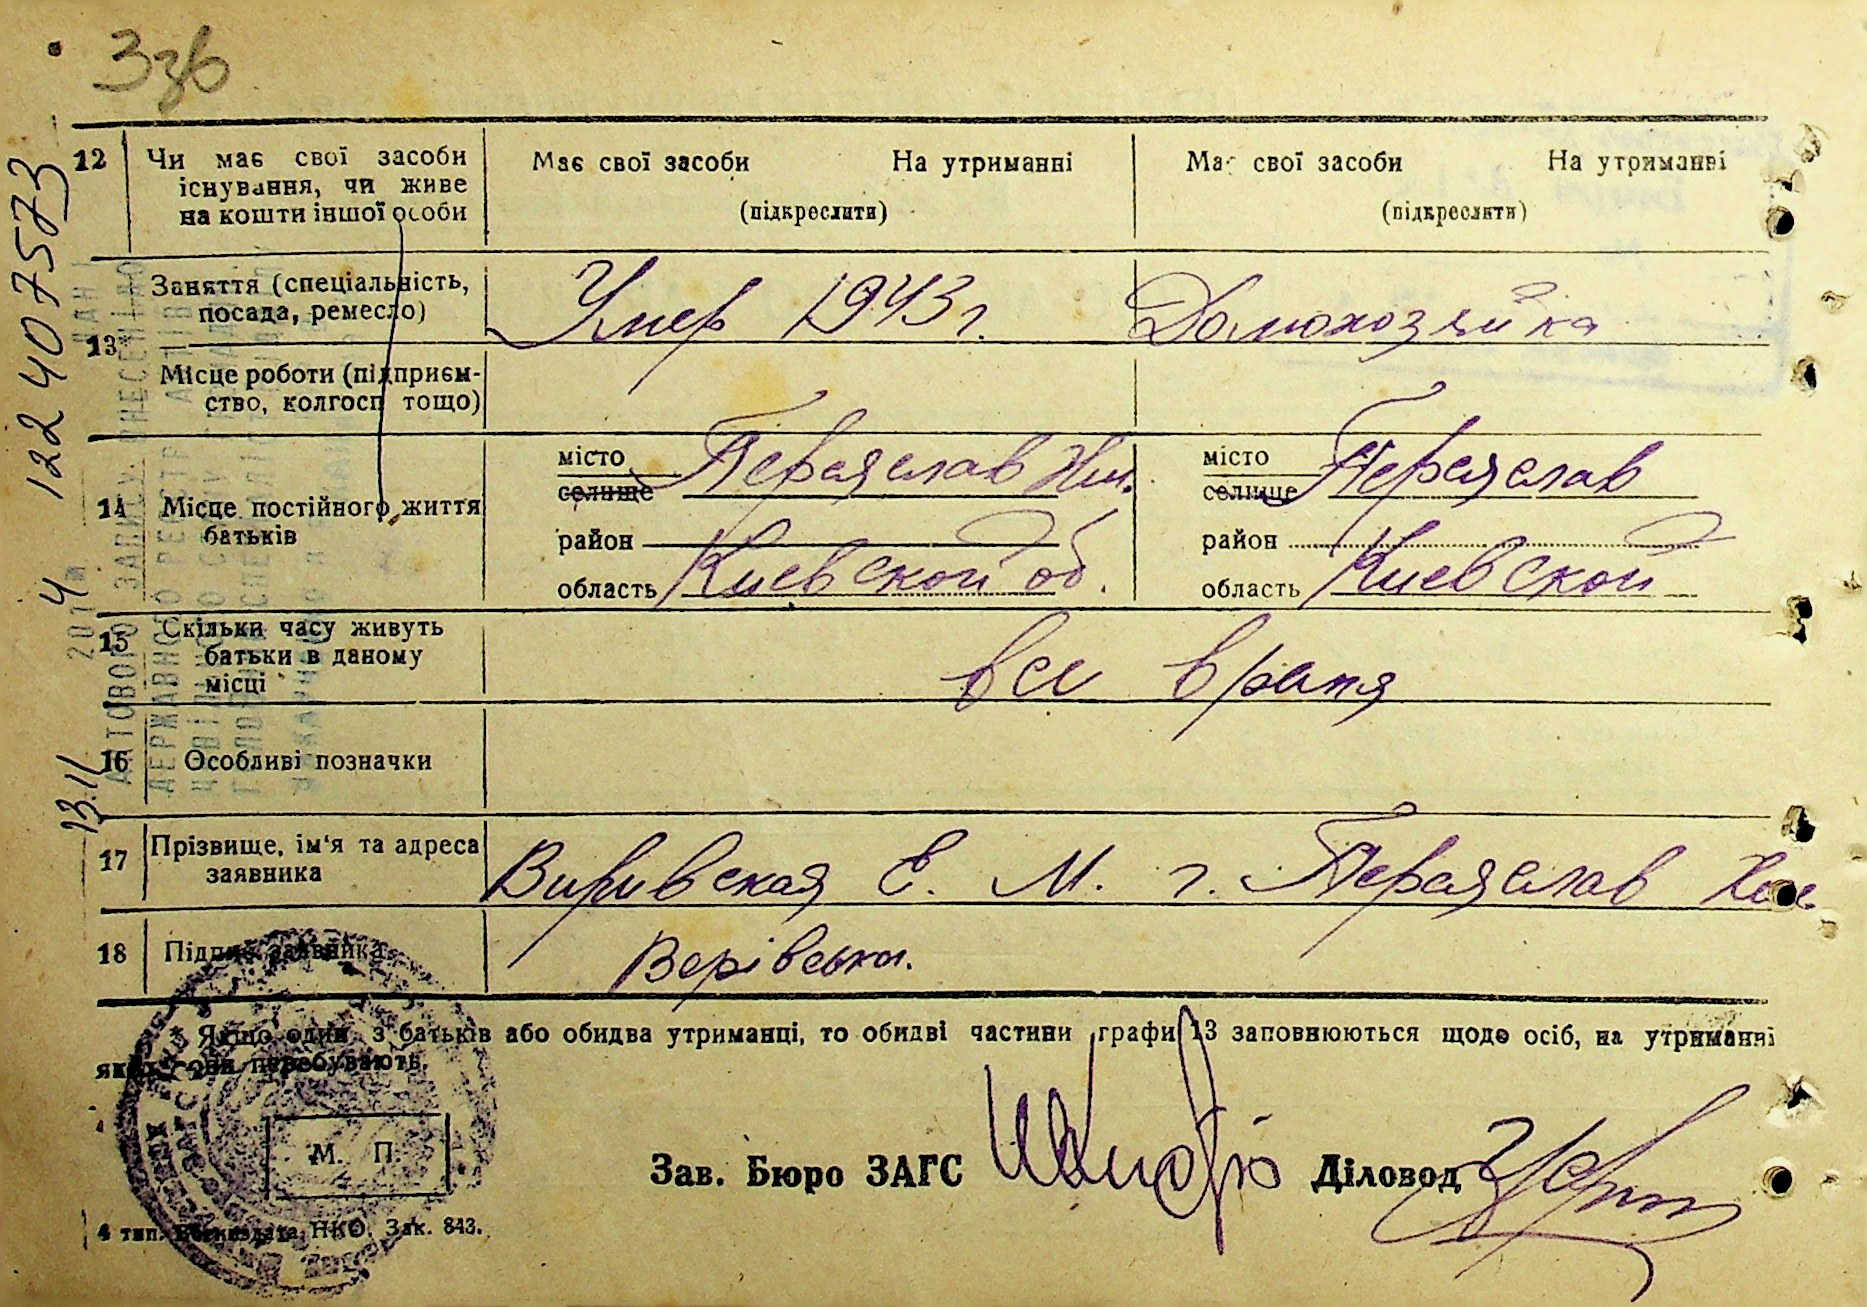 Ззв
12 Чи має свої засоби існування, чи живе на кошти іншої особи
Має свої засоби На утриманні
(підкреслити)
Має свої засоби На утриманні
(підкреслити)
13* Заняття (спеціальність, посада, ремесло)
Умер 1943 г. Домохозяйка
Місце роботи (підприємство, колгосп тощо)
14 Місце постійного життя батьків
місто селище Переяслав Хм.
район
область Киевской об.
місто селище Переяслав
район
область Киевской
15 Скільки часу живуть батьки в даному місці
все время
16 Особливі позначки
17 Прізвище, ім'я та адреса заявника
Виривская Е. М. г. Переяслав Хм.
18 Підпис заявника
Верівська.
* Якщо один з батьків або обидва утриманці, то обидві частини графи 13 заповнюються щодо осіб, на утриманні
яких вони перебувають.
М. П.
Зав. Бюро ЗАГС Діловод
4 тип. Воениздата НКО. Зак. 843.
13.11 4 122407573
АКТОВОГО ЗАПИСУ ВНЕСЕНІ ДО
ДЕРЖАВНОГО РЕЄСТР
201